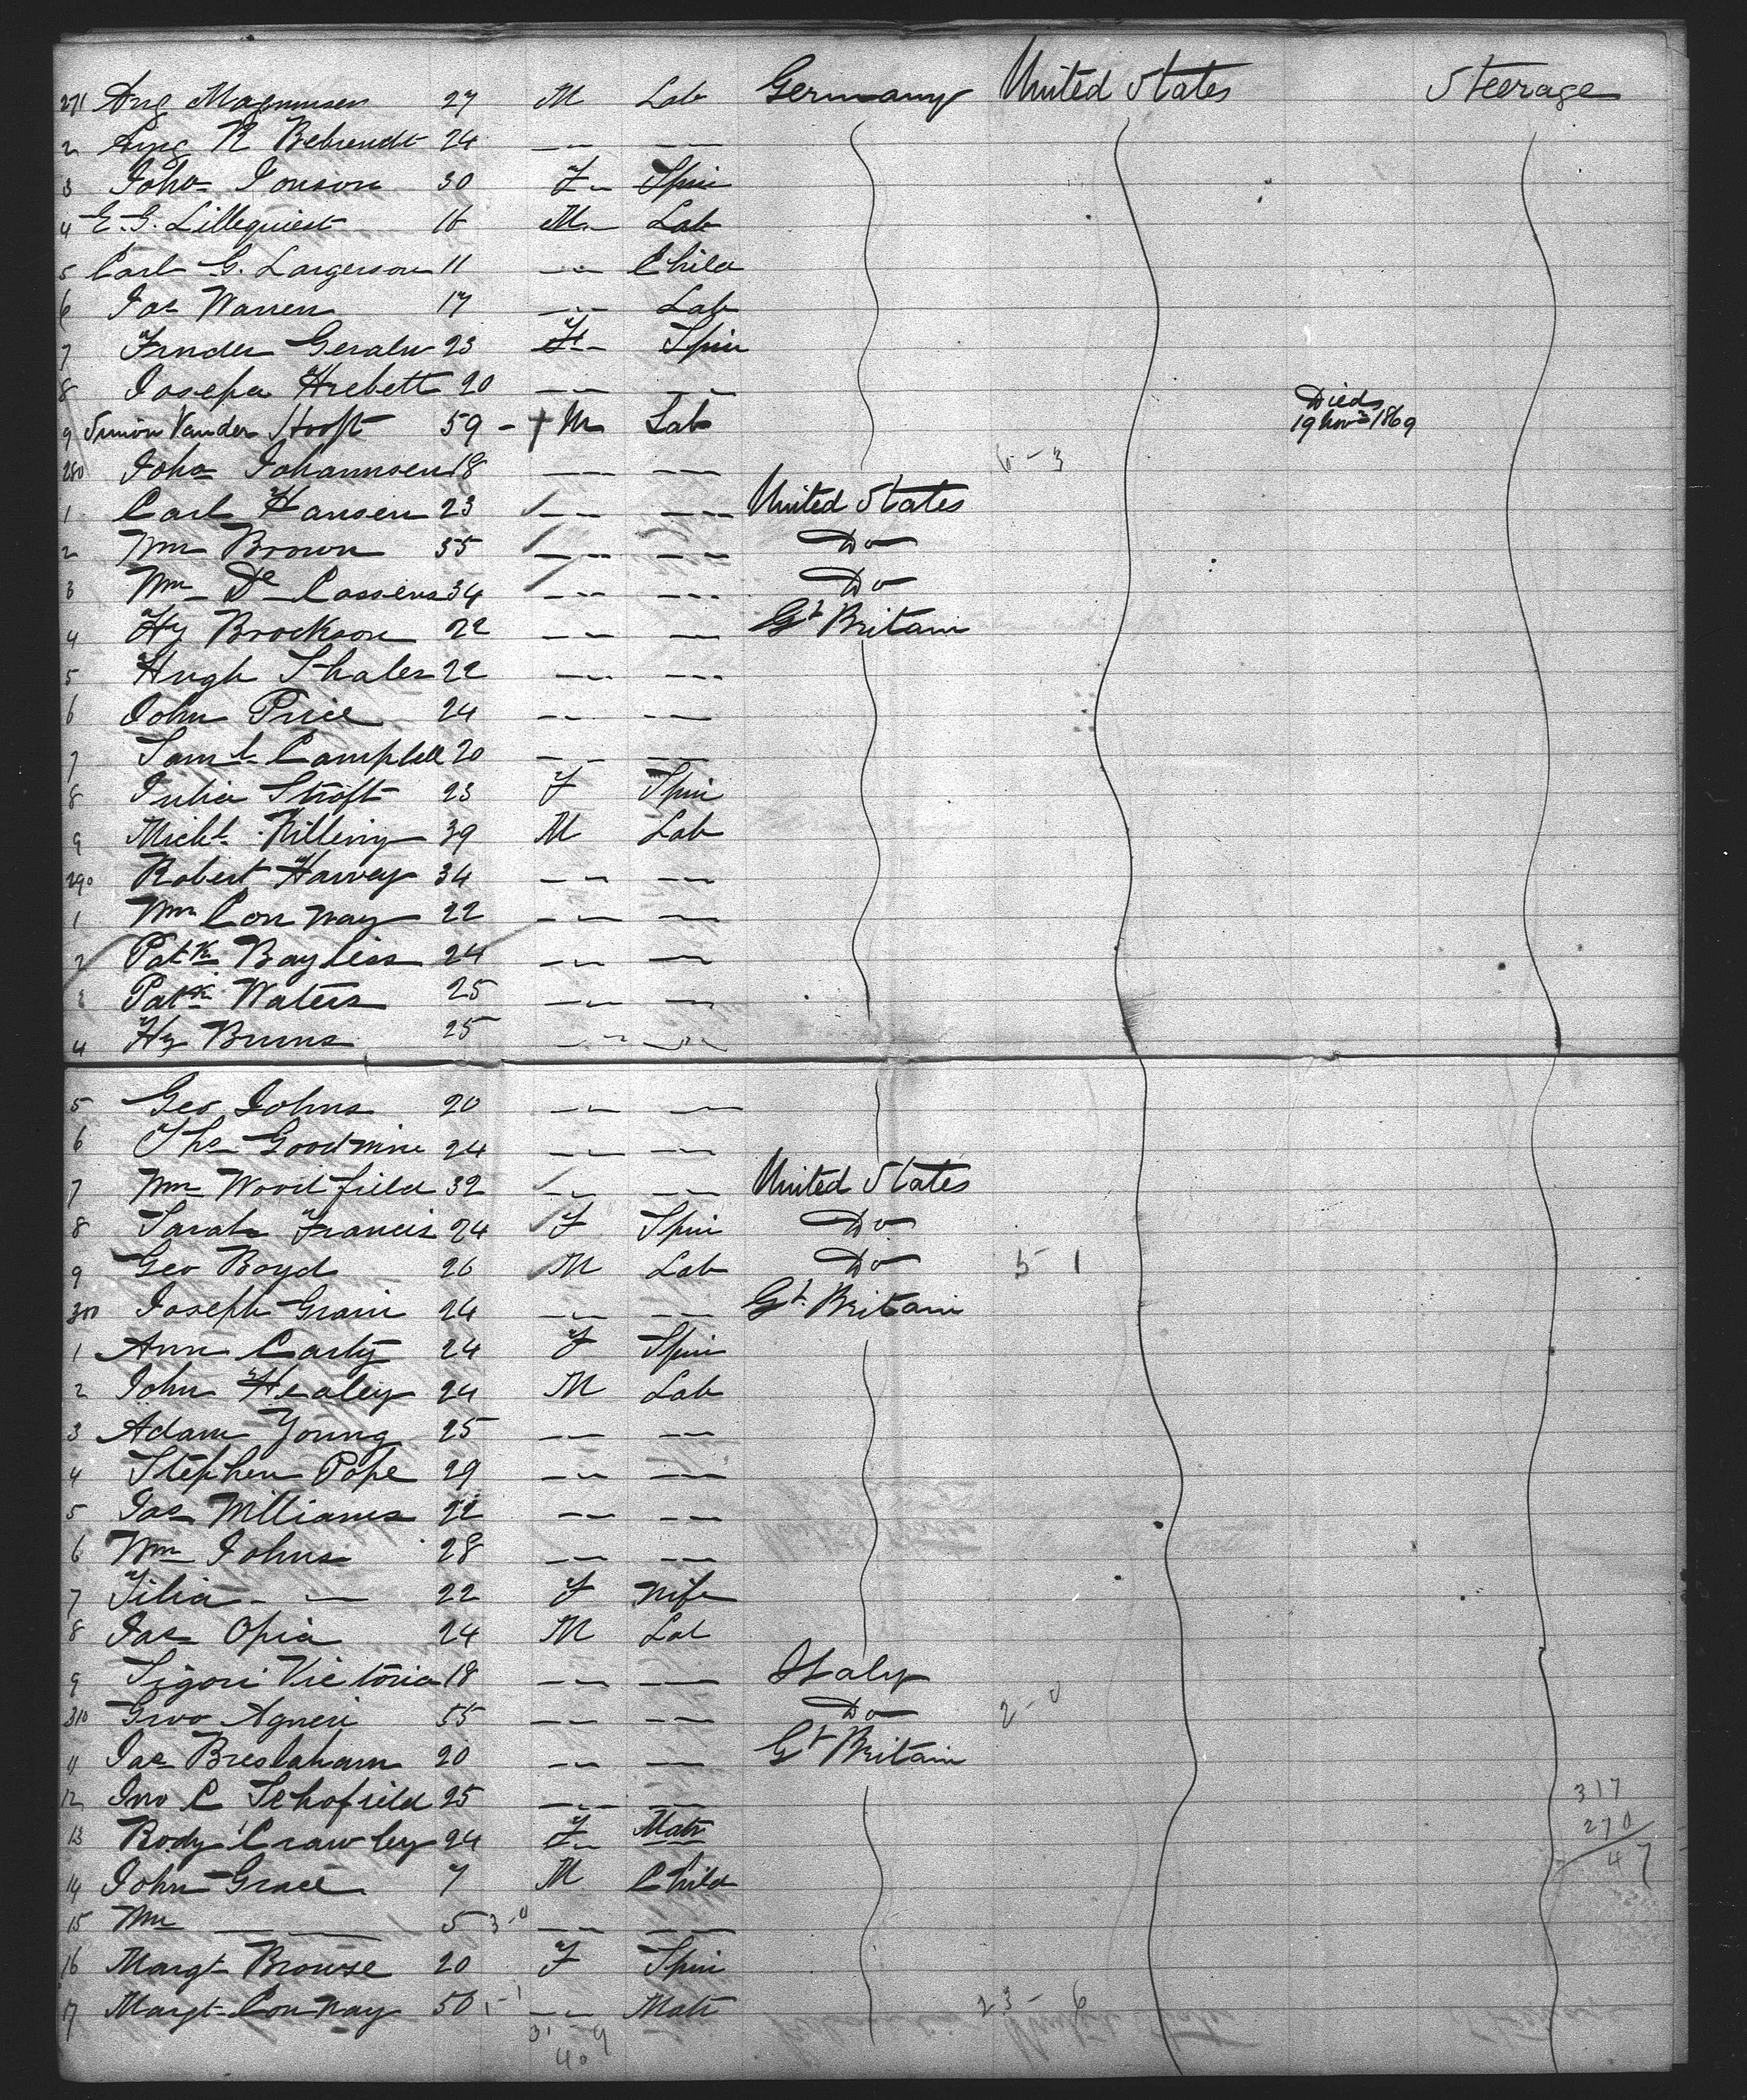 271 Aug Magnussen 27 M Lab Germany United States Steerage
2 Aug R Behrendt 24 — —
3 Joha Jonson 30 F Spin
4 E. G. Lillequist 18 M Lab
5 Carl G. Largerson 11 — Child
6 Jas Warren 17 — Lab
7 23 F Spin
8 Josepha 20 — —
9 Simon Vander Hooft 59 - + M Lab Died 19 Nov 1869
280 Joha Johannsen 18 — — 6 - 3
1 Carl Hansen 23 — — United States
2 Wm Brown 35 — — Do
3 Wm De Cassens 34 — — Do
4 Hy Brockson 22 — — Gt Britain
5 Hugh Thales 22 — —
6 John Price 24 — —
7 Saml Campbell 20 — —
8 Julia Stroft 23 F Spin
9 Michl Killing 39 M Lab
290 Robert Harvey 34 — —
1 Wm Conway 22 — —
2 Patk Bayliss 24 — —
3 Patk Waters 25 — —
4 Hy Burns 25 — —
5 Geo Johns 20 — —
6 Ths Goodwine 24 — —
7 Wm Woodfield 32 — — United States
8 Sarah Francis 24 F Spin Do
9 Geo Boyd 26 M Lab Do 5 1
300 Joseph Grain 24 — — Gt. Britain
1 Ann Carty 24 F Spin
2 John Healey 24 M Lab
3 Adam Young 25 — —
4 Stephen Pope 29 — —
5 Jas Williams 22 — —
6 Wm Johns 28 — —
7 — 22 F Wife
8 Jas Opia 24 M Lab
9 Sigori Victoria 18 — — Italy
310 Agneri 55 — — Do 2 - 0
11 Jas Breslaham 20 — — Gt Britain
12 Jno C Schofield 25 — — 317
13 Body Crawley 24 F Matr 270
14 John Grace 7 M Child 47
15 Wm — 5 3-0 — —
16 Margt Browse 20 F Spin
17 Margt Conway 50 1-1 — Matr 23 - 6
31 - 9
40